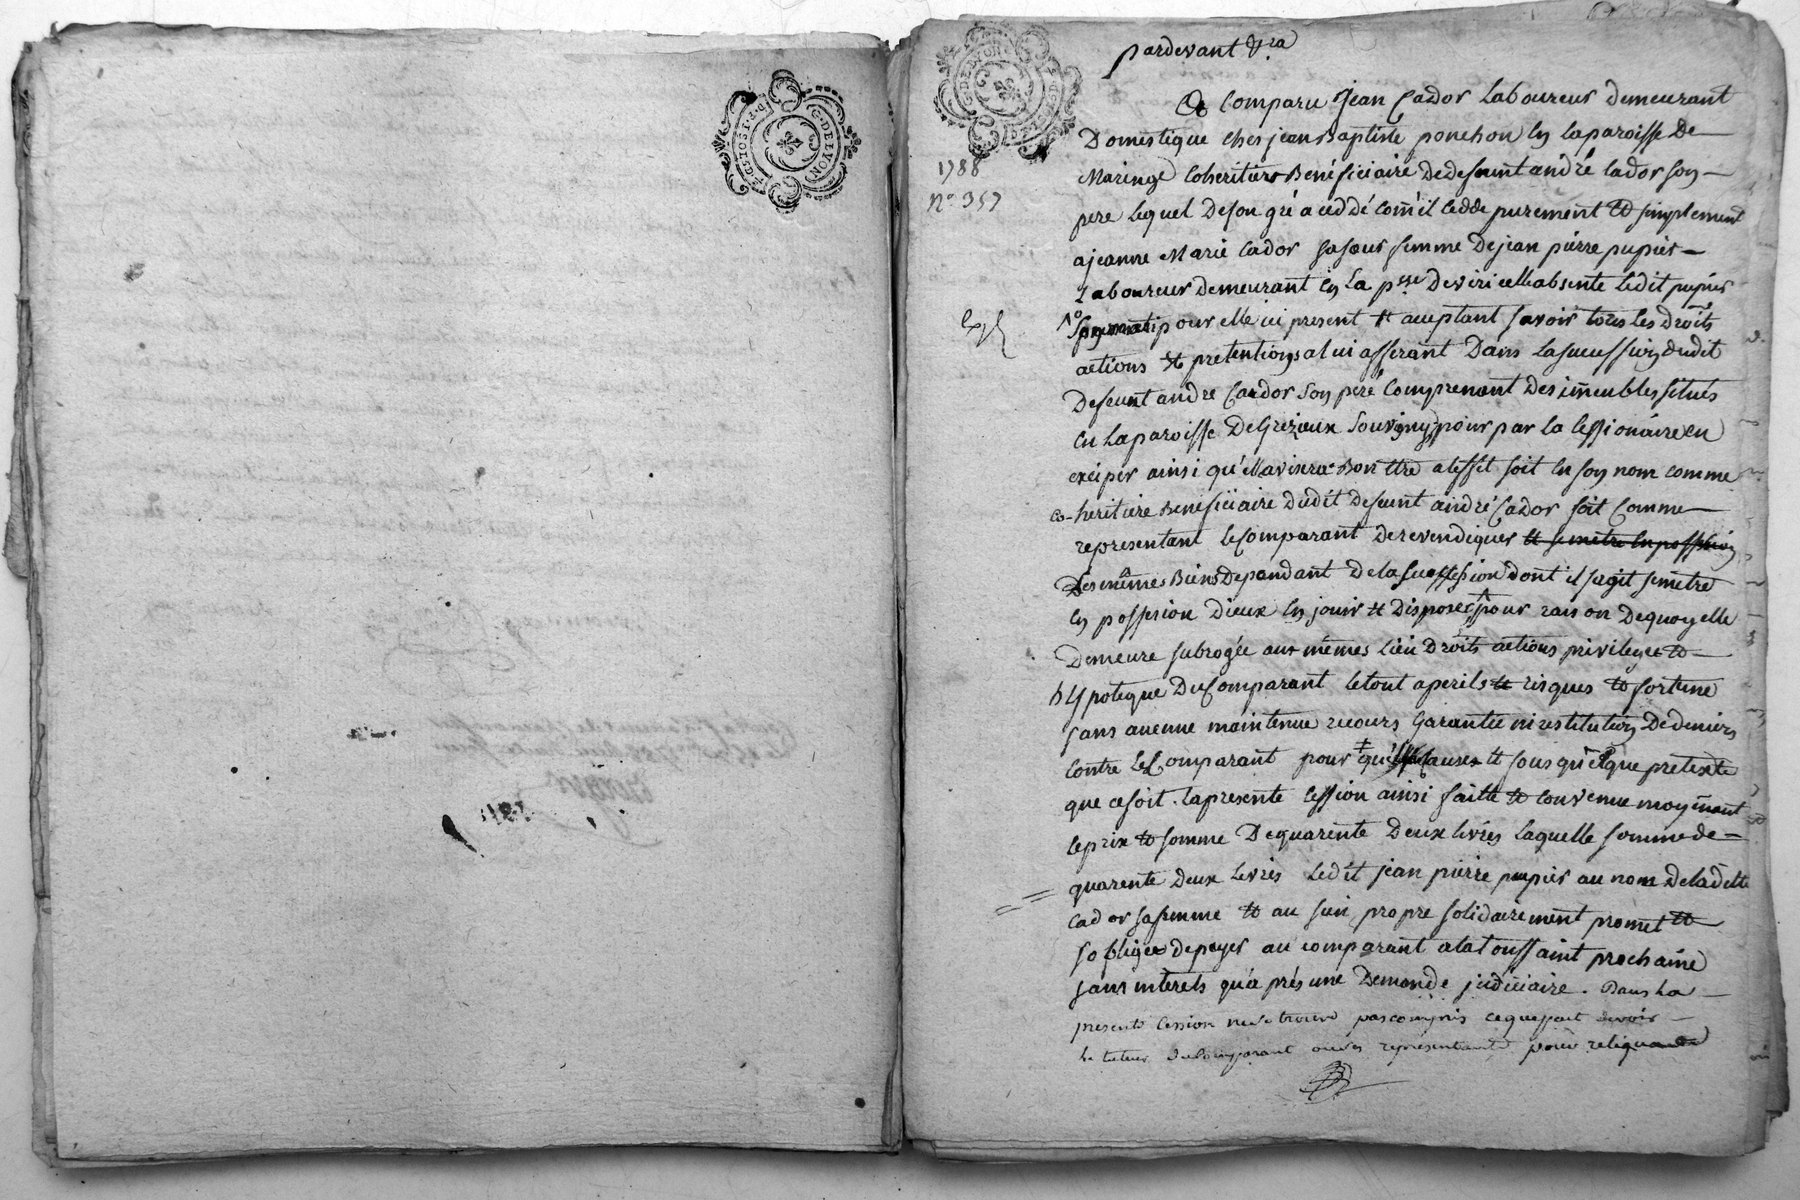 G. DE LYON
pardevant &ra
1788
n° 357
a Comparu Jean Cador Laboureur demeurant
Domestique ches jean Baptiste ponchon en la paroisse de
Maringe Coheritier Bénéficiaire de defeunt andré Cador son
pere lequel de son gré a ceddé com̃e il cedde purement et simplement
a jeanne Marie Cador sa sœur femme de jean pierre pupier
Laboureur demeurant en La psse de viricelle absente ledit pupier
pour elle ici present et aceptant savoir tous les droits
actions et pretentions a lui afferant Dans la sucession dudit
Defeunt andre Cador son pere Comprenant des im̃eubles situés
en la paroisse De Grezieux Souvigny pour par la Cessionnaire en
exciper ainsi qu'ell avisera bon ttre a leffet soit en son nom comme
co-heritiere Beneficiaire dudit defeunt andré Cador soit Comme
representant le Comparant de revendiquer et se metre en possession
Des mêmes Biens Dependant de la Succession dont il s'agit se metre
en possesion dieux en jouir et disposer pour raison de quoy elle
Demeure subrogée aux mêmes lieu Droits actions privileges et
hypoteque du Comparant le tout a perils et risques et fortune
sans aucune maintenue recours Garantie ni restitution de deniers
contre le Comparant pour causes et sous quelque pretexte
que ce soit. la presente Cession ainsi faitte et convenue moyẽnant
le prix et somme De quarente Deux livres laquelle somme de
quarente deux Livres Ledit jean pierre pupier au nom de la ditte
Cador sa femme et au sien propre solidairement promet et
s'oblige de payer au comparant a la toussaint prochaine
sans interets qu'a prés une Demande judiciaire. Dans La
presente Cession ne se trouve pas compris ce que peut devoir
le tuteur du Comparant ou ses representants pour reliqua